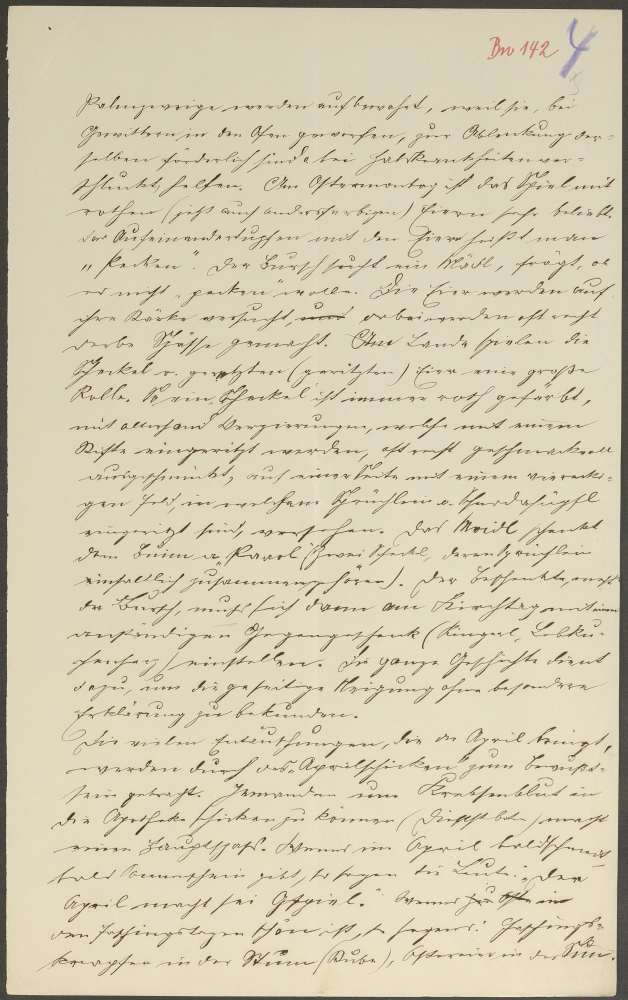 Bw 142 4
Palmzweige werden aufbewahrt, weil sie, bei
Gewittern in den Ofen geworfen, zur Ablenkung der-
selben förderlich sind u. bei Halskrankheiten ver-
schluckt, helfen. Am Ostermontag ist das Spiel mit
rothen (jetzt auch andersfarbigen) Eiern sehr beliebt.
Das Aufeinandertupfen mit den Eiern heißt man
"Pecken". Der Bursch sucht ein Mädl, frägt, ob
es nicht "pecken" wolle. Die Eier werden auf
ihre Stärke versucht, und dabei werden oft recht
derbe Spässe gemacht. Am Lande spielen die
Scheckel o. geretzten (geritzten) Eier eine große
Rolle. So ein "Scheckel" ist immer roth gefärbt,
mit allerhand Verzierungen, welche mit einem
Stifte eingeritzt werden, oft recht geschmackvoll
ausgeschmückt, auf einer Seite mit einem viereck-
gen Feld, in welchem Sprüchlein o. Schnadahüpfl
eingeritzt sind, versehen. Das Moidl schenkt
dem Buim a "Paarl" (zwei Scheckl, deren Sprüchlein
einfältlich zusammengehören). Der Beschenkte,
der Bursch, muß sich dann am Kirchtag mit einem
anständigen Gegengeschenk (Ringerl, Lebku-
chenherz) einstellen. Die ganze Geschichte dient
dazu, um die gegenseitige Neigung ohne besondere
Erklärung zu bekunden.
Die vielen Enttäuschungen, die der April bringt,
werden durch das "Aprilschicken" zum Bewußt-
sein gebracht. Jemanden um Krebsenblut in
die Apotheke schicken zu können (Dienstbote) macht
einen Hauptspaß. Wenns im April bald schneit
bald Sonnenschein gibt, so sagen die Leute: "Der
April macht sei Gspiel." Wenns zu Ostern in
den Faschingstagen schön ist, so sagens: Faschings-
krapfen in der Sunn (Stube), Ostereier in der Sunn.